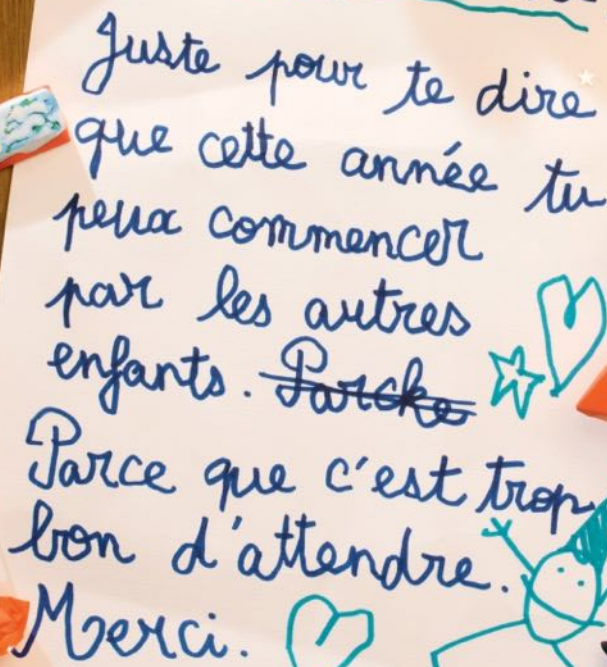 Juste pour te dire
que cette année tu
peux commencer
par les autres
enfants. Parcke
Parce que c'est trop
bon d'attendre.
Merci.